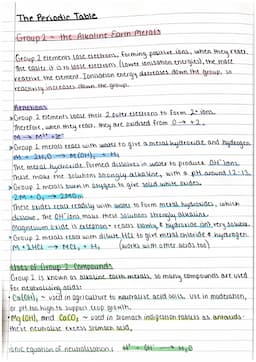 The Periodic Table
Group 2 - the Alkaline Earth Metals
Group 2 elements lose electrons, forming positive ions, when they react.
The easier it is to lose electrons (lower ionisation energies), the more
reactive the element. Ionisation energy decreases down the group, so
reactivity increases down the group.
Reactions
Group 2 elements lose their 2 outer electrons to form 2+ ions.
Therefore, when they react, they are oxidised from 0 → +2.
M → M²⁺ + 2e⁻
Group 2 metals react with water to give a metal hydroxide and hydrogen.
M + 2H₂O → M(OH)₂ + H₂
The metal hydroxide formed dissolves in water to produce OH⁻ ions.
These make the solutions strongly alkaline, with a pH around 12-13.
Group 2 metals burn in oxygen to give solid white oxides.
2M + O₂ → 2MO
These oxides react readily with water to form metal hydroxides, which
dissolve. The OH⁻ ions make these solutions strongly alkaline.
Magnesium oxide is exception - reacts slowly, & hydroxide isn't very soluble.
Group 2 metals react with dilute HCl to give metal chloride & hydrogen.
M + 2HCl → MCl₂ + H₂ (works with other acids too)
Uses of Group 2 Compounds
Group 2 is known as alkaline earth metals, so many compounds are used
for neutralising acids:
Ca(OH)₂ - used in agriculture to neutralise acid soils. Use in moderation,
or pH too high to support crop growth.
Mg(OH)₂ and CaCO₃ - used in some indigestion tablets as antacids.
These neutralise excess stomach acid.
Ionic equation of neutralisation: H⁺ + OH⁻ → H₂O